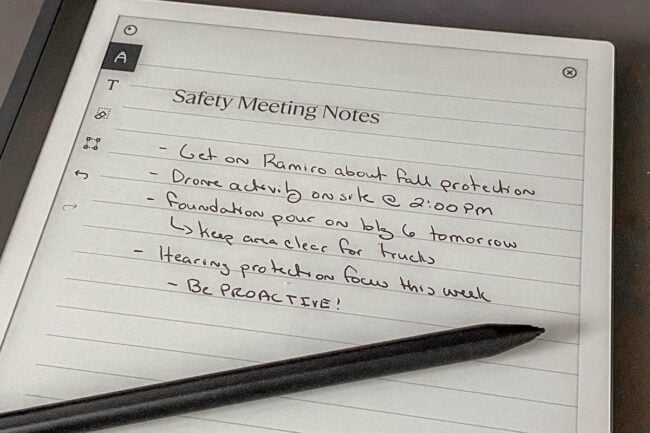 A
T
Safety Meeting Notes
- Get on Ramiro about fall protection
- Drone activity on site @ 2:00 PM
- Foundation pour on bldg 6 tomorrow
↳ Keep area clear for trucks
- Hearing protection focus this week
- Be PROACTIVE!